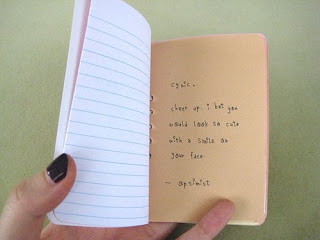 cynic.
cheer up. i bet you
would look so cute
with a smile on
your face.
- optimist